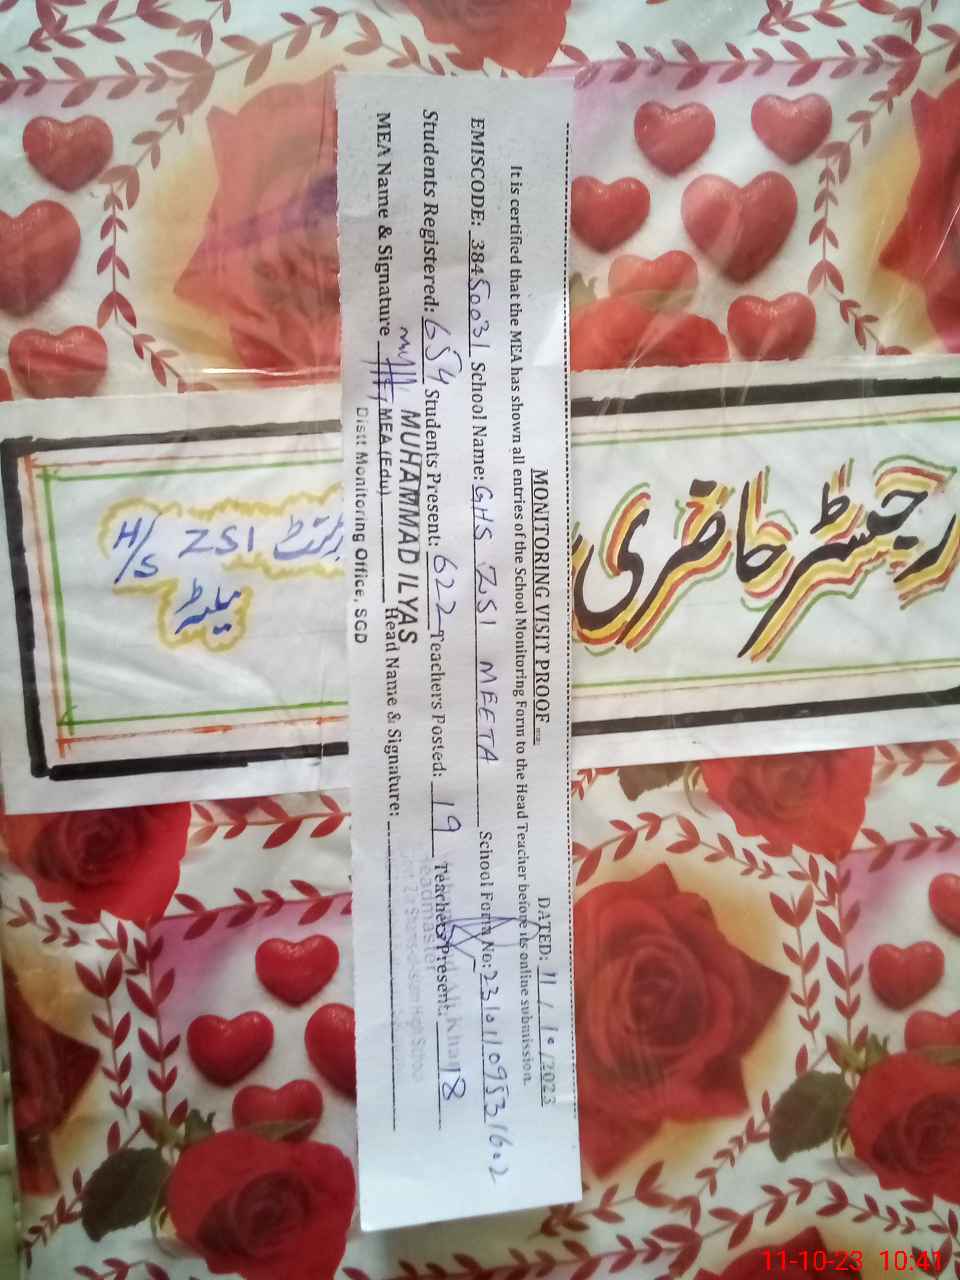 MONITORING VISIT PROOF
DATED: 11/10/2023
It is certified that the MEA has shown all entries of the School Monitoring Form to the Head Teacher before its online submission.
EMISCODE: 38450031 School Name: GHS ZSI MEETA School Form No: 23101109531602
Students Registered: 654 Students Present: 622 Teachers Posted: 19 Teachers Present: 18
MEA Name & Signature Head Name & Signature:
MUHAMMAD ILYAS
MEA (Edu)
Distt Monitoring Office, SGD
Ali Khan
Headmaster
High School
رجسٹر حاضری
H/S ZSI
11-10-23 10:41